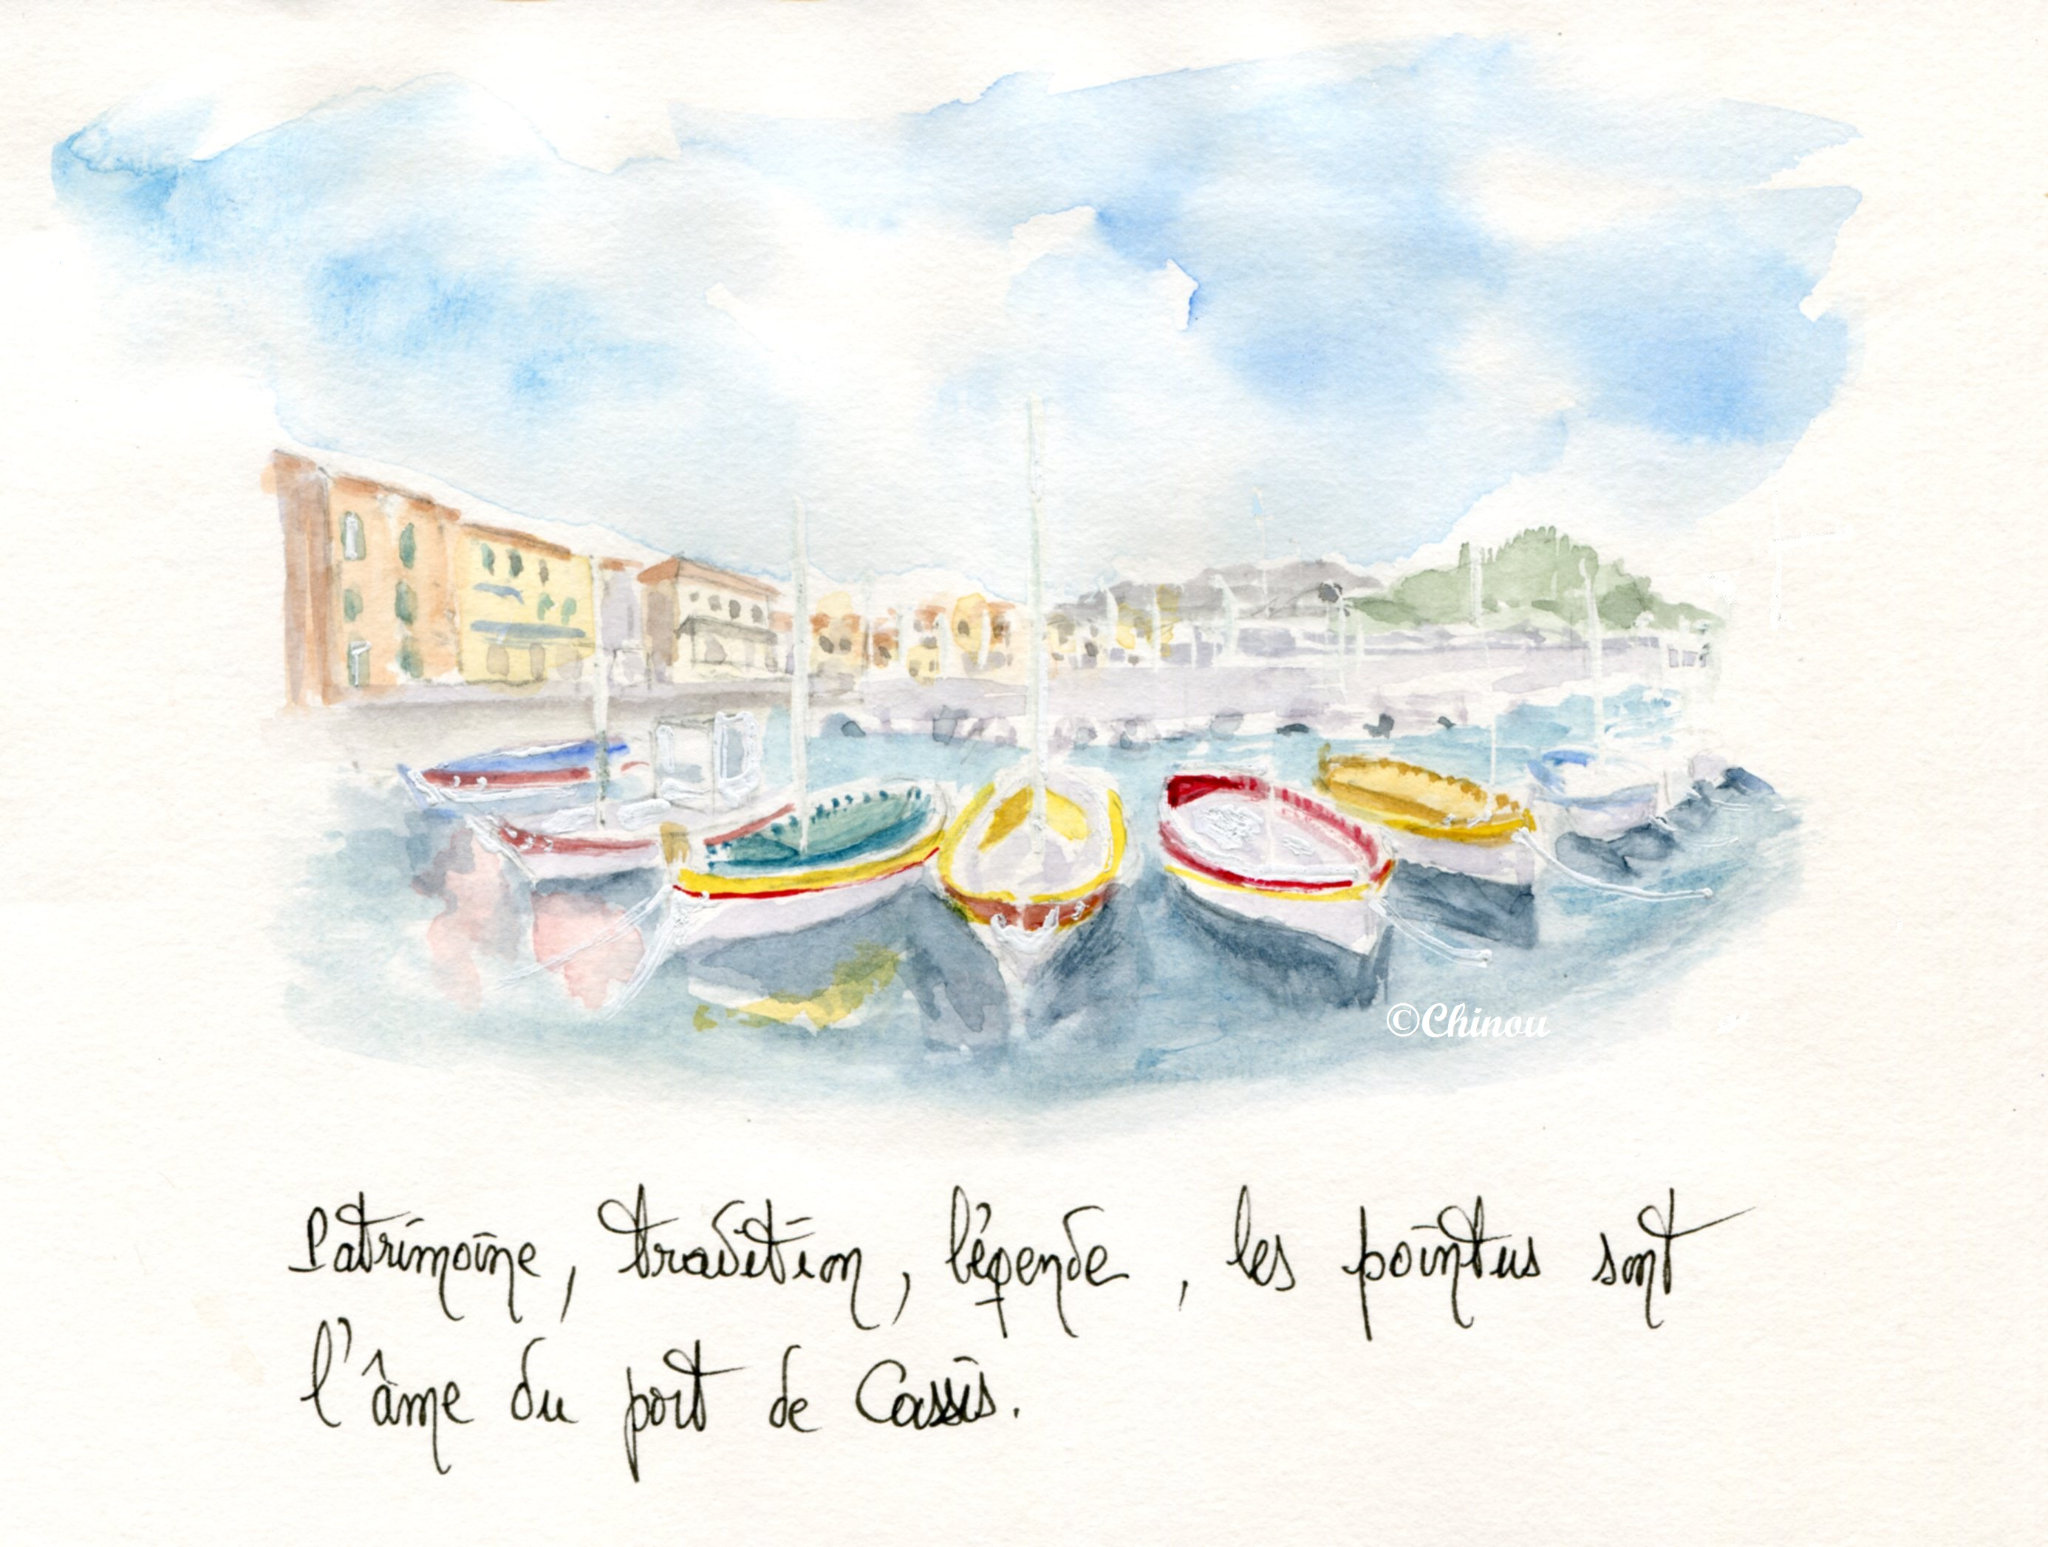 ©Chinou
Patrimoine, tradition, légende, les pointus sont
l'âme du port de Cassis.